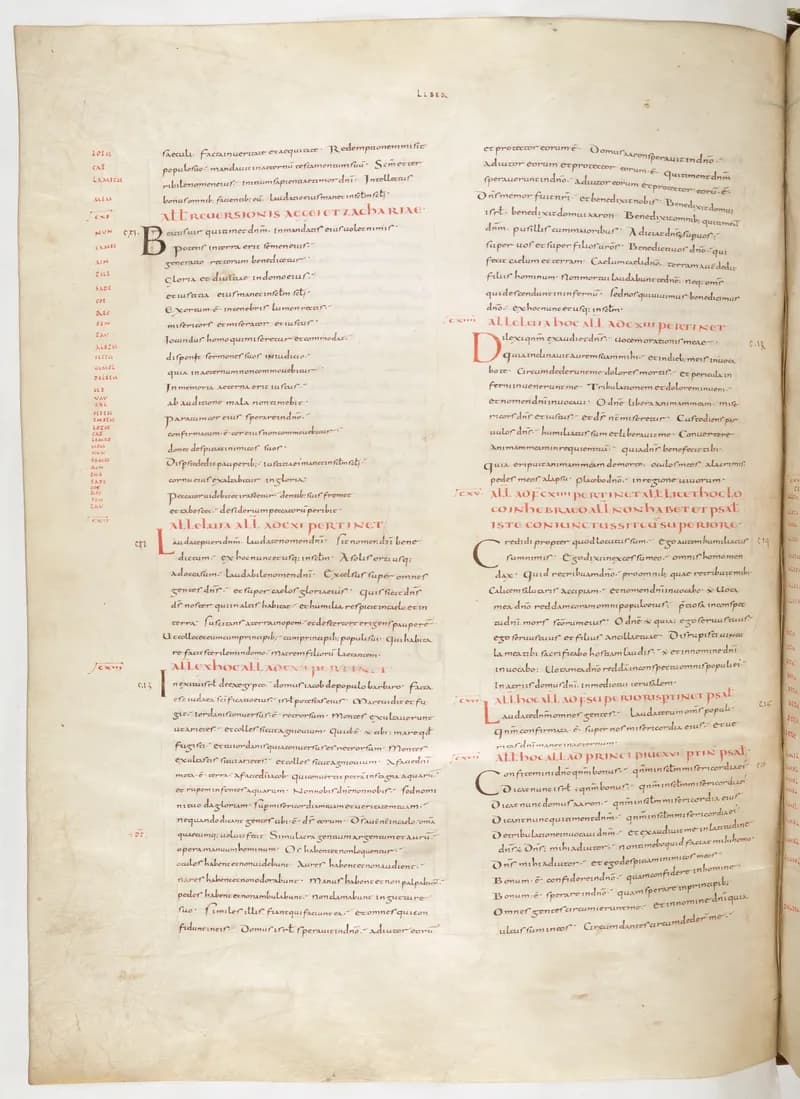 LIBER
saeculi · Facta in ueritate et aequitate · Redemptionem misit
populo suo · mandauit in aeternum testamentum suū · Scm̄ et ter
ribile nomen eius · initium sapientiae timor dn̄i · Intellectus
bonus omnib; facientib; eū · laudatio eius manet in sclm̄ scl̄i ·
ALL REUERSIONIS AGGEI ET ZACHARIAE ·
CXI
Beatus uir qui timet dnm̄ · in mandatis eius uolet nimis ·
Potens in terra erit semen eius ·
generatio rectorum benedicetur ·
Gloria et diuitiae in domo eius ·
et iustitia eius manet in sclm̄ scl̄i ·
Exortum ē · in tenebris lumen rectis ·
misericors et miserator et iustus ·
Iocundus homo qui miseretur et commodat ·
disponit sermones suos in iudicio ·
quia in aeternum non commouebitur ·
In memoria aeterna erit iustus ·
ab auditione mala non timebit ·
Paratum cor eius sperare in dnō ·
confirmatum ē · cor eius non commouebitur ·
donec despiciat inimicos suos ·
Dispsit dedit pauperib; iustitia eius manet in sclm̄ scl̄i ·
cornu eius exaltabitur in gloria ·
Peccator uidebit et irascetur · dentib; suis fremet
et tabescet · desiderium peccatorū peribit ·
ALLELUIA ALL AO CXI PERTINET
Laudate pueri dnm̄ · laudate nomen dn̄i · Sit nomen dn̄i bene
dictum · ex hoc nunc et usq; in sclm̄ · A solis ortu usq;
ad occasum · laudabile nomen dn̄i · Excelsus super omnes
gentes dn̄s · et super caelos gloria eius · Quis sicut dn̄s
dr̄ noster qui in altis habitat · et humilia respicit in caelo et in
terra · Suscitans a terra inopem · et de stercore erigens pauperē ·
Ut collocet eum cum principib; cum principib; populi sui · Qui habita
re facit sterilem in domo · matrem filiorū laetantem ·
CXIII
ALL EX HOC ALL AO CXI PERTINET
In exitu isrl̄ de aegypto · domus iacob de populo barbaro · Facta
est iudaea scificatio eius · isrl̄ potestas eius · Mare uidit et fu
git · iordanis conuersus ē · retrorsum · Montes exultauerunt
ut arietes · et colles sicut agni ouium · Quid ē · tibi mare qd̄
fugisti · et tu iordanis quia conuersus es retrorsum · Montes
exultastis sicut arietes · et colles sicut agni ouium · A facie dn̄i
mota ē · terra · a facie dī iacob · Qui conuertit petrā in stagna aquarū ·
et rupem in fontes aquarum · Non nobis dn̄e non nobis · sed nomi
ni tuo da gloriam · Sup̄ misericordia tua et ueritate tua ·
nequando dicant gentes ubi ē · dr̄ eorum · Dr̄ aut n̄r̄ in caelo · oma
quaecumq; uoluit fecit · Simulacra gentium argentum et aurū ·
opera manuum hominum · Os habent et non loquentur ·
oculos habent et non uidebunt · Aures habent et non audient ·
nares habent et non odorabunt · Manus habent et non palpabunt ·
pedes habent et non ambulabunt · non clamabunt in gutture
suo · Similes illis fiant qui faciunt ea · et omnes qui con
fidunt in eis · Domus isrl̄ sperauit in dnō · adiutor eorū
et protector eorum ē · Domus aaron sperauit in dnō ·
adiutor eorum et protector eorum ē · Qui timent dnm̄
sperauerunt in dnō · adiutor eorum et protector eorū ē ·
Dn̄s memor fuit nr̄i · et benedixit nobis · Benedixit domui
isrl̄ · benedixit domui aaron · Benedixit omnib; qui timent
dnm̄ · pusillis cum maiorib; · Adiciat dn̄s sup̄ uos ·
super uos et super filios uros · Benedicti uos dnō · qui
fecit caelum et terram · Caelum caeli dnō · terram aut dedit
filiis hominum · Non mortui laudabunt te dn̄e · neq; oms
qui descendunt in infernū · Sed nos qui uiuimus benedicimus
dnō · ex hoc nunc et usq; in sclm̄ ·
CXIIII
ALLELUIA HOC ALL AO CXIII PERTINET
Dilexi qnm̄ exaudiet dn̄s · uocem orationis meae ·
Quia inclinauit aurem suam mihi · et in dieb; meis inuoca
bo te · Circumdederunt me dolores mortis · et pericula in
ferni inuenerunt me · Tribulationem et dolorem inueni ·
et nomen dn̄i inuocaui · O dn̄e libera animam meam · mise
ricors dn̄s et iustus · et dr̄ nr̄ miseretur · Custodiens par
uulos dn̄s · humiliatus sum et liberauit me · Conuertere
anima mea in requiem tuā · quia dn̄s benefecit tibi ·
Quia eripuit animam meam de morte · oculos meos a lacrimis
pedes meos a lapsu · Placebo dnō · in regione uiuorum ·
CXV
ALL AO FS CXIIII PERTINET ALL LICET HOC LO
CO IN HEBRAEO ALL NON HABET ET PSAL
ISTE CONIUNCTUS SIT CU SUPERIORE ·
Credidi propter quod locutus sum · Ego autem humiliatus
sum nimis · Ego dixi in excessu meo · omnis homo men
dax · Quid retribuam dnō · pro omnib; quae retribuit mihi ·
Calicem salutaris accipiam · et nomen dn̄i inuocabo · Uota
mea dnō reddam coram omni populo eius · p̄tiosa in conspec
tu dn̄i · mors scōrum eius · O dn̄e quia ego seruus tuus ·
ego seruus tuus et filius ancillae tuae · Dirupisti uincu
la mea tibi sacrificabo hostiam laudis · et in nomine dn̄i
inuocabo · Uota mea dnō reddā in conspectu omnis populi ei
In atriis domus dn̄i · in medio tui ierusalem ·
CXVI
ALL HOC ALL AO FS UPERIORIS PTINET PSAL
Laudate dnm̄ omnes gentes · Laudate eum oms̄ populi ·
Qnm̄ confirmata ē · super nos misericordia eius · et ue
ritas dn̄i manet in aeternum ·
CXVII
ALL HOC ALL AO PRINCIPIU CXVI PTIN PSAL
Confitemini dnō qnm̄ bonus · qnm̄ in sclm̄ misericordia ei
Dicat nunc isrl̄ · qnm̄ bonus · qnm̄ in sclm̄ misericordia ei
Dicat nunc domus aaron · qnm̄ in sclm̄ misericordia eius
Dicant nunc qui timent dnm̄ · qnm̄ in sclm̄ misericordia eius
De tribulatione inuocaui dnm̄ · et exaudiuit me in latitudine
dn̄s · Dn̄s mihi adiutor · non timebo quid faciat mihi homo
Dn̄s mihi adiutor · et ego despiciam inimicos meos
Bonum ē · confidere in dnō · quam confidere in homine
Bonum ē · sperare in dnō · quam sperare in principib;
Omnes gentes circumierunt me · et in nomine dn̄i quia
ultus sum in eos · Circumdantes circumdederunt me ·